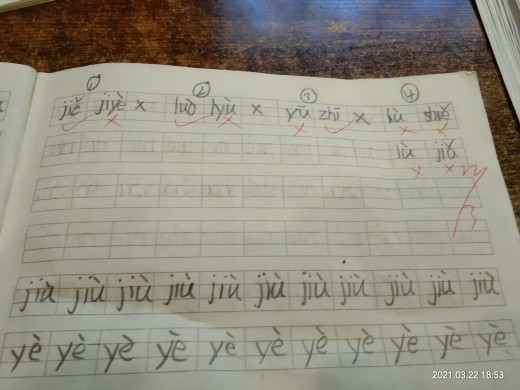 ① ② ③ ④
jiě jiyè × luò lyù × yū zhī × lù shuě
lù jiǒ
jiù jiù jiù jiù jiù jiù jiù jiù jiù jiù jiù
yè yè yè yè yè yè yè yè yè yè yè
2021.03.22 18:53